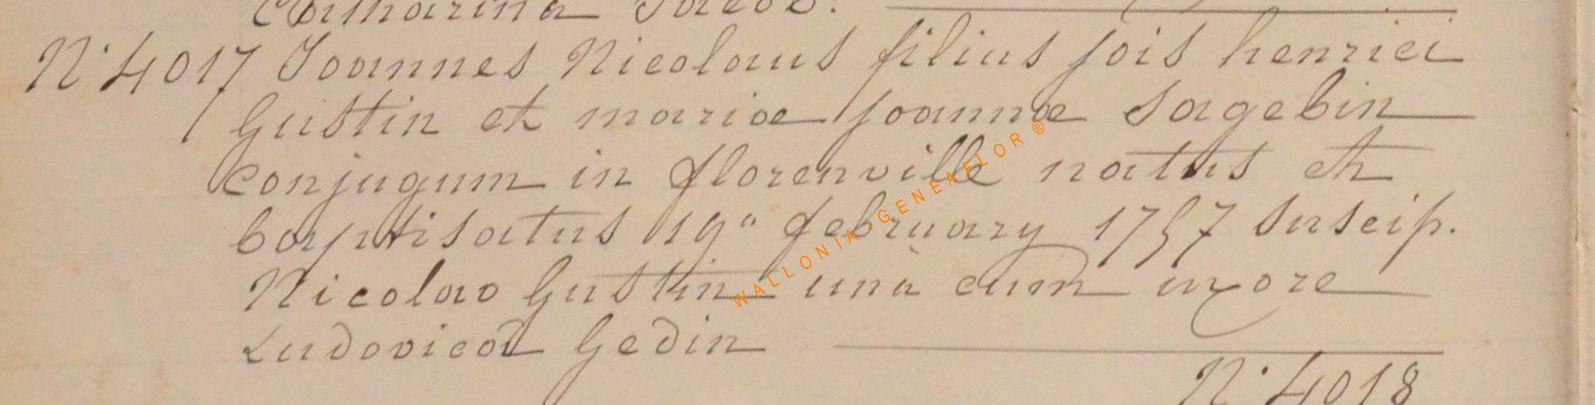 Catharina Jacob.
N° 4017 Joannes Nicolaus filius jois henrici
Gustin et mariae joannae Sagebin
conjugum in florenville natus et
baptisatus 19a february 1757 Suscip.
Nicolao Gustin unà cum uxore
Ludovicâ Gedin
N° 4018
WALLONIA GENEAFLOR ®